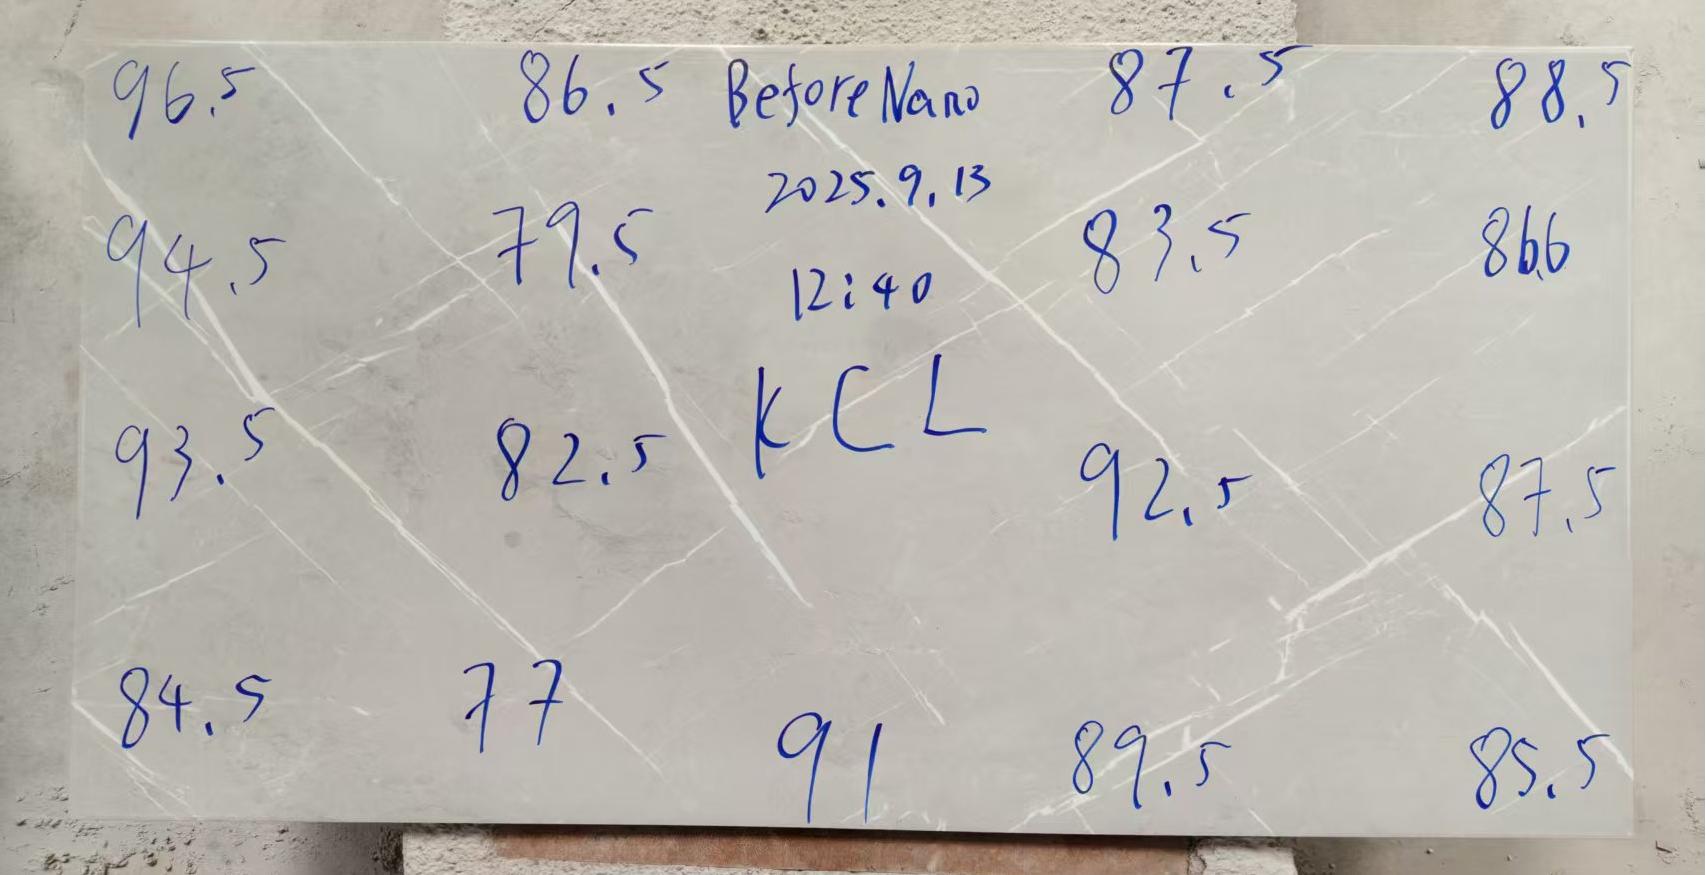 96.5 86.5 Before Nano 87.5 88.5
2025.9.13
94.5 79.5 83.5 86.6
12:40
KCL
93.5 82.5 92.5 87.5
84.5 77 91 89.5 85.5